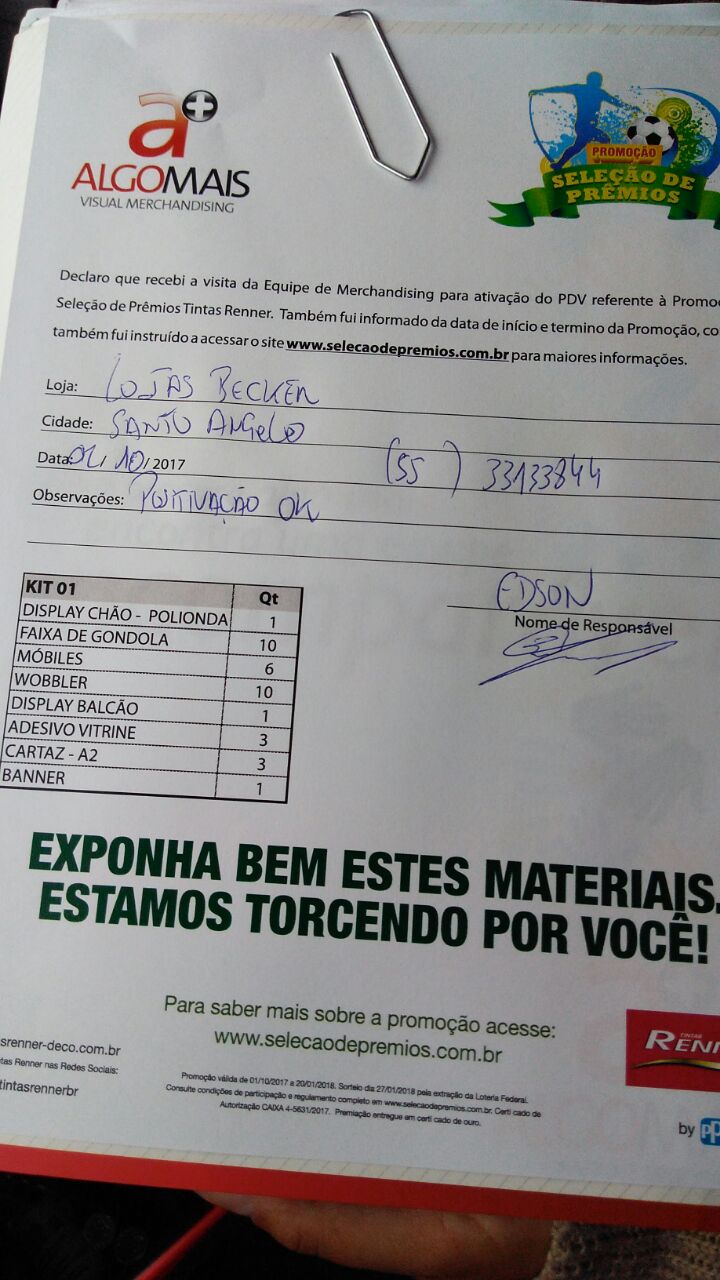 a+
ALGOMAIS
VISUAL MERCHANDISING
PROMOÇÃO
SELEÇÃO DE
PRÊMIOS
Declaro que recebi a visita da Equipe de Merchandising para ativação do PDV referente à Promo
Seleção de Prêmios Tintas Renner. Também fui informado da data de início e termino da Promoção, co
também fui instruído a acessar o site www.selecaodepremios.com.br para maiores informações.
Loja: LOJAS BECKER
Cidade: SANTO ANGELO
Data: /10/2017 (55) 33133844
Observações: POSITIVAÇÃO OK
EDSON
Nome de Responsável
KIT 01 Qt
DISPLAY CHÃO - POLIONDA 1
FAIXA DE GONDOLA 10
MÓBILES 6
WOBBLER 10
DISPLAY BALCÃO 1
ADESIVO VITRINE 3
CARTAZ - A2 3
BANNER 1
EXPONHA BEM ESTES MATERIAIS.
ESTAMOS TORCENDO POR VOCÊ!
Para saber mais sobre a promoção acesse:
www.selecaodepremios.com.br
srenner-deco.com.br
tas Renner nas Redes Sociais:
tintasrennerbr
Promoção válida de 01/10/2017 a 20/01/2018. Sorteio dia 27/01/2018 pela extração da Loteria Federal.
Consulte condições de participação e regulamento completo em www.selecaodepremios.com.br. Certi cado de
Autorização CAIXA 4-5631/2017. Premiação entregue em certi cado de ouro.
TINTAS
RENN
by pp